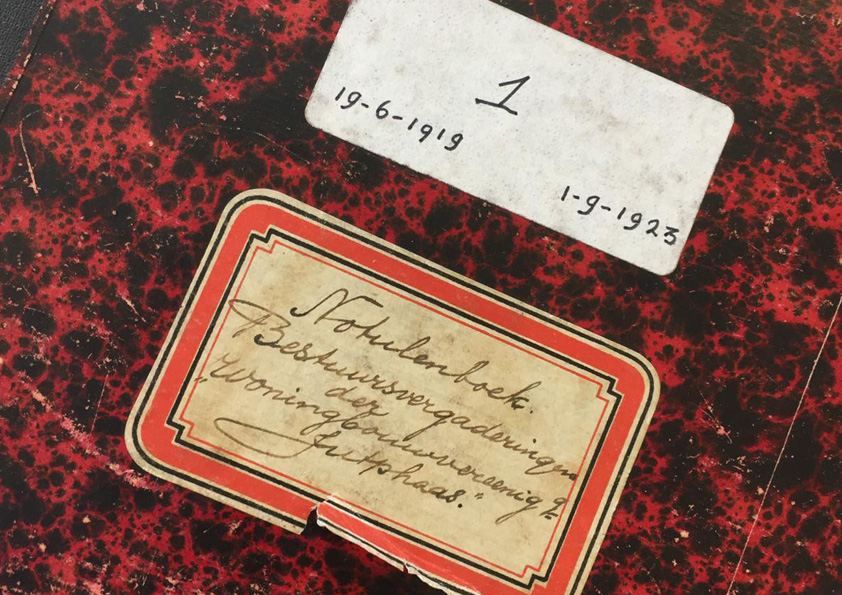 1
19-6-1919
1-9-1923
Notulenboek.
Bestuursvergaderingen
der
„Woningbouwvereenig g.
Jutphaas."